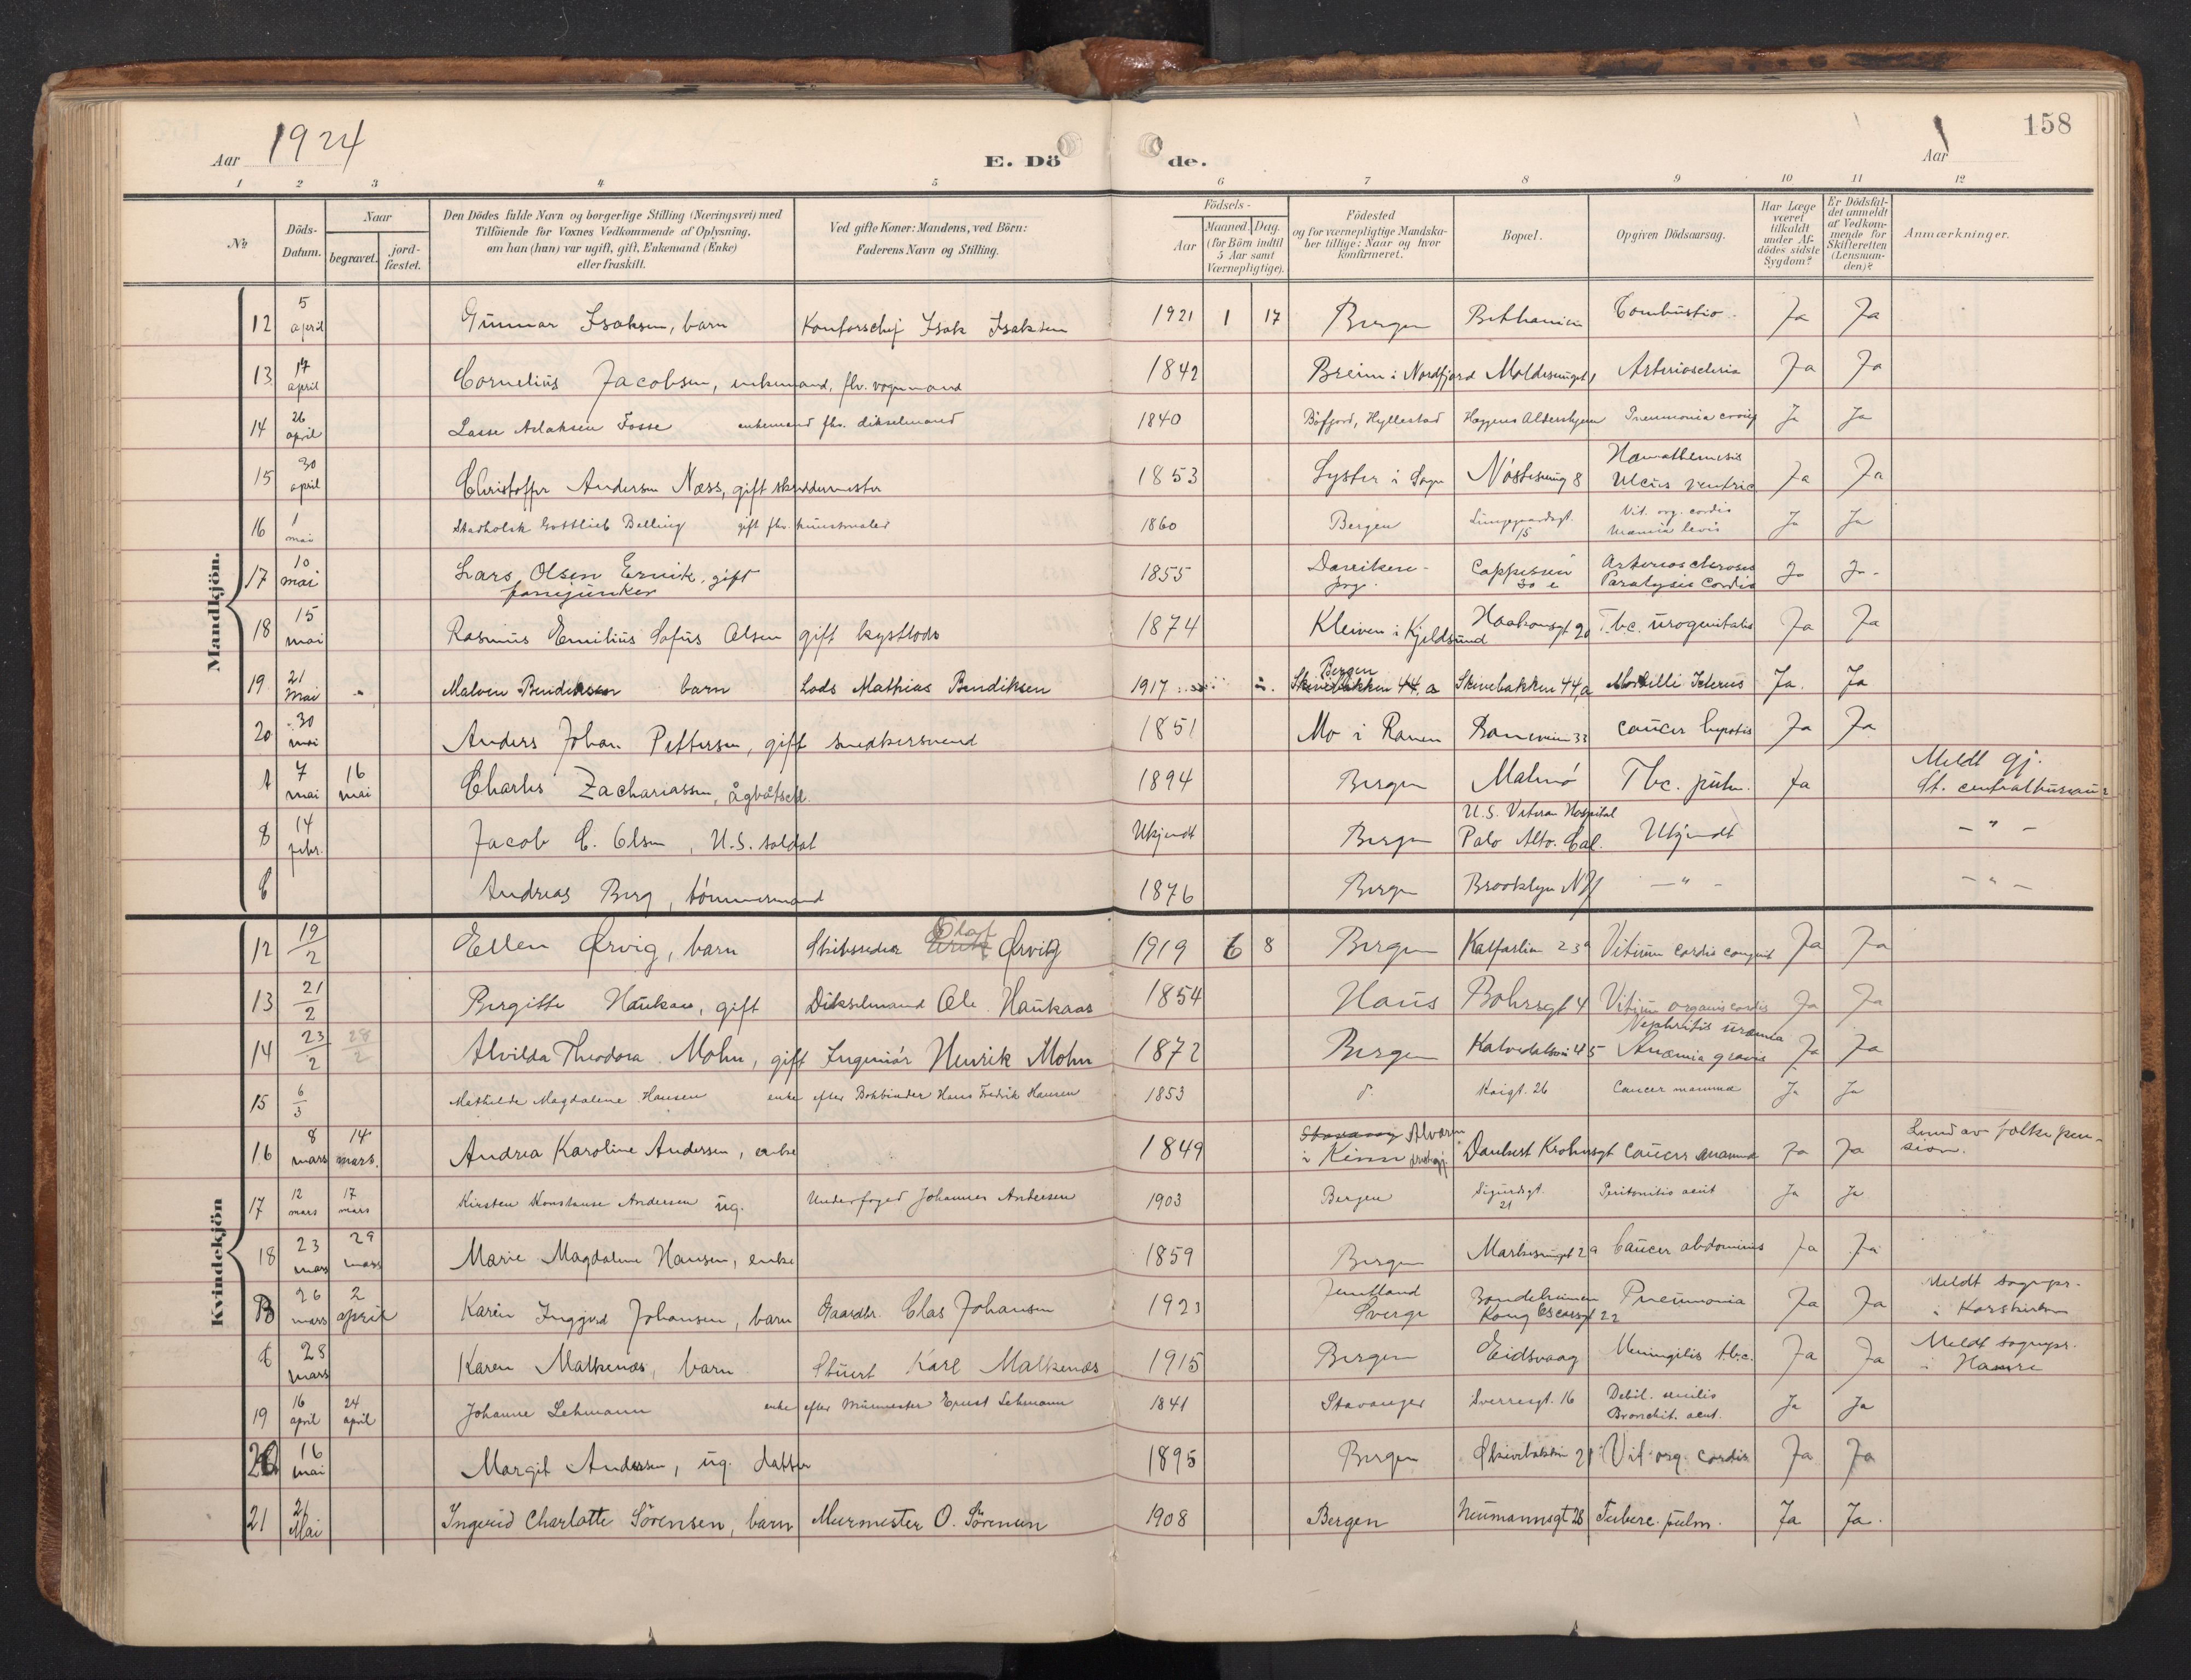 158
Aar 1924
E. Döde.
Aar
1 2 3 4 5 6 7 8 9 10 11 12
No
Döds-Datum.
Naar
begravet.
jord-fæstet.
Den Dödes fulde Navn og borgerlige Stilling (Næringsvei) med
Tilföiende for Voxnes Vedkommende af Oplysning,
om han (hun) var ugift, gift, Enkemand (Enke)
eller fraskilt.
Ved gifte Koner: Mandens, ved Börn:
Faderens Navn og Stilling.
Födsels-
Aar
Maaned. Dag.
(for Börn indtil
5 Aar samt
Værnepligtige).
Födested
og for værnepligtige Mandska-
ber tillige: Naar og hvor
konfirmeret.
Bopæl.
Opgiven Dödsaarsag.
Har Læge
været
tilkaldt
under Af-
dödes sidste
Sygdom?
Er Dödsfal-
det anmeldt
af Vedkom-
mende for
Skifteretten
(Lensman-
den)?
Anmærkninger.
Mandkjön.
12 5 april Gunnar Isaksen, barn Kontorschef Isak Isaksen 1921 1 17 Bergen Bethanien Combustio Ja Ja
13 17 april Cornelius Jacobsen, enkemand, fhv. vognmand 1842 Breim i Nordfjord Ja Ja
14 26 april Lasse Aslaksen Fosse enkemand fhv. dikselmand 1840 Böfjord, Hyllestad Pneumonia croup Ja Ja
15 30 april Christoffer Andersen Næss, gift skræddermester 1853 Lyster i Sogn Nöstesmug 8 Hæmathemesis Ulcus ventric Ja Ja
16 1 mai Gottlieb Belling gift fhv. kunstmaler 1860 Bergen Lungegaardsgt. 15 Vit. org. cordis Mania levis Ja Ja
17 10 mai Lars Olsen Ervik, gift fanejunker 1855 Cappesven 30 e Arteriosclerosis Paralysis Cordis Ja Ja
18 15 mai Rasmus Emilius Sofus Olsen gift kystlods 1874 Kleiven i Kjeldsund Haakonsgt 20 Tbc. urogenitalis Ja Ja
19 21 Mai Malvin Bendiksen barn Lods Mathias Bendiksen 1917 Bergen Skivebakken 44, a Skivebakken 44, a Morbilli Icterus Ja. Ja
20 30 mai Anders Johan Pettersen, gift snedkersvend 1851 Mo i Ranen Baneveien 33 cancer hepatis Ja Ja
A 7 mai 16 mai Charles Zachariassen 1894 Bergen Malmö Tbc. pulm. Ja Meldt gj. St. centralbureau
B 14 febr. Jacob C. Olsen, U.S. soldat Ukjendt Bergen U.S. Veteran Hospital Palo Alto. Cal. Ukjendt - " -
C Andreas Berg, tömmermand 1876 Bergen Brooklyn N.Y. - " - - " -
Kvindekjön
12 19/2 Ellen Ørvig, barn Skibsreder Olaf Ørvig 1919 6 8 Bergen Kalfarlien 23a Vitium cordis congenit Ja Ja
13 21/2 Birgitte Haukaas, gift Dikselmand Ole Haukaas 1854 Haus Bohrsgt 4 Vitium organis cordis Ja Ja
14 23/2 28/2 Alvilda Theodora Mohn, gift Ingeniör Henrik Mohn 1872 Bergen Kalvedalsvei 45 Nephritis uræmia Anæmia gravis Ja Ja
15 6/3 Mathilde Magdalene Hansen enke efter Bokbinder Hans Fredrik Hansen 1853 d. Kaigt. 26 Cancer mamma Ja Ja
16 8 mars 14 mars. Andrea Karoline Andersen, enke 1849 Alvøren i Kinn Danckert Krohnsgt cancer mamma Ja Ja
17 12 mars 17 mars Kirsten Konstanse Andersen ug. Underfoged Johannes Andersen 1903 Bergen Sigurdsgt. 21 Peritonitis acut Ja Ja
18 23 mars 29 mars Marie Magdalene Hansen, enke 1859 Bergen Cancer abdominis Ja Ja
B 26 mars 2 april Karin Ingegerd Johansen, barn Gaardbr. Clas Johansen 1923 Jemtland Sverge Bondeheimen Kong Oscarsgt 22 Pneumonia Ja Ja Meldt sognepr. i Korskirken
C 28 mars Karen Matkenæs, barn Stuert Karl Matkenæs 1915 Bergen Eidsvaag Meningitis tbc. Ja Ja Meldt sognepr. i Hamre
19 16 april 24 april Johanne Lehmann enke efter Murmester Ernst Lehmann 1841 Stavanger Sverresgt. 16 Debil. senilis Bronchit. acut. Ja Ja
20 16 mai Margit Andersen, ug. datter 1895 Bergen Skivebakken 21 Vit. org. cordis Ja Ja
21 21 Mai Ingerid Charlotte Sörensen, barn Murmester O. Sörensen 1908 Bergen Neumannsgt 28 Tuberc. pulm. Ja Ja.